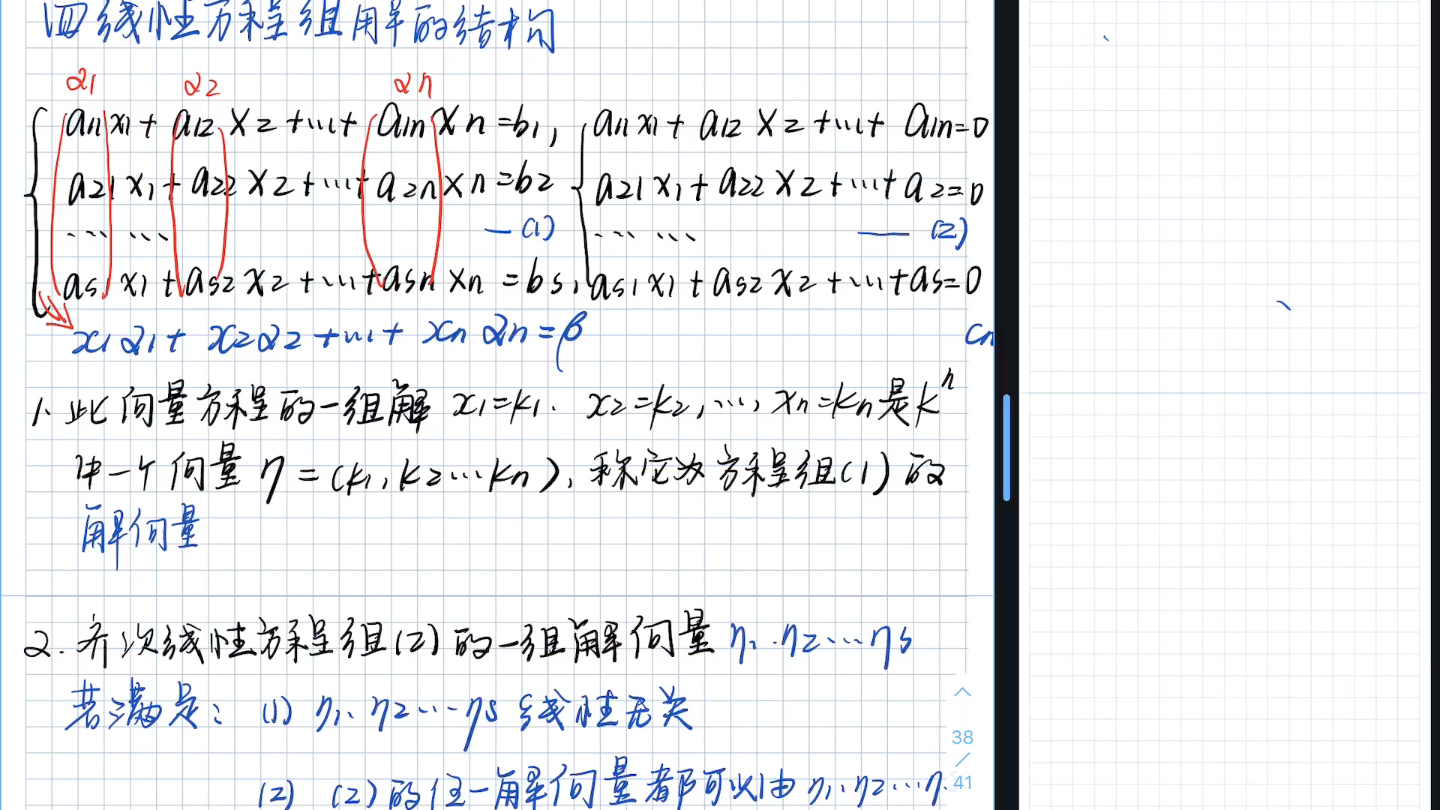 四 线性方程组解的结构
α1 α2 αn
a11 x1 + a12 x2 + ... + a1n xn = b1, a11 x1 + a12 x2 + ... + a1n = 0
a21 x1 + a22 x2 + ... + a2n xn = b2 a21 x1 + a22 x2 + ... + a2 = 0
... ... —(1) ... ... —— (2)
as1 x1 + as2 x2 + ... + asn xn = bs, as1 x1 + as2 x2 + ... + as = 0
x1α1 + x2α2 + ... + xn αn = β cn
1. 此向量方程的一组解 x1=k1. x2=k2, ..., xn=kn是K^n
中一个向量 η = (k1, k2 ... kn), 称它为方程组(1)的
解向量
2. 齐次线性方程组(2)的一组解向量 η1. η2 ... ηs
若满足: (1) η1. η2 ... ηs 线性无关
(2) (2)的任一解向量都可以由 η1. η2 ... η
38
/
41